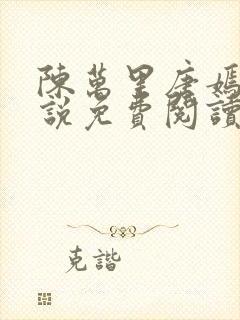 陳萬里唐嫣
說免費閱讀
克諧